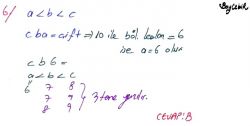 6/ a < b < c
cba = çift ⇒ 10 ile böl. kalan = 6
ise a = 6 olur
cb6 =
a < b < c
6 7 8
7 9
8 9
3 tane yazılır.
CEVAP: B